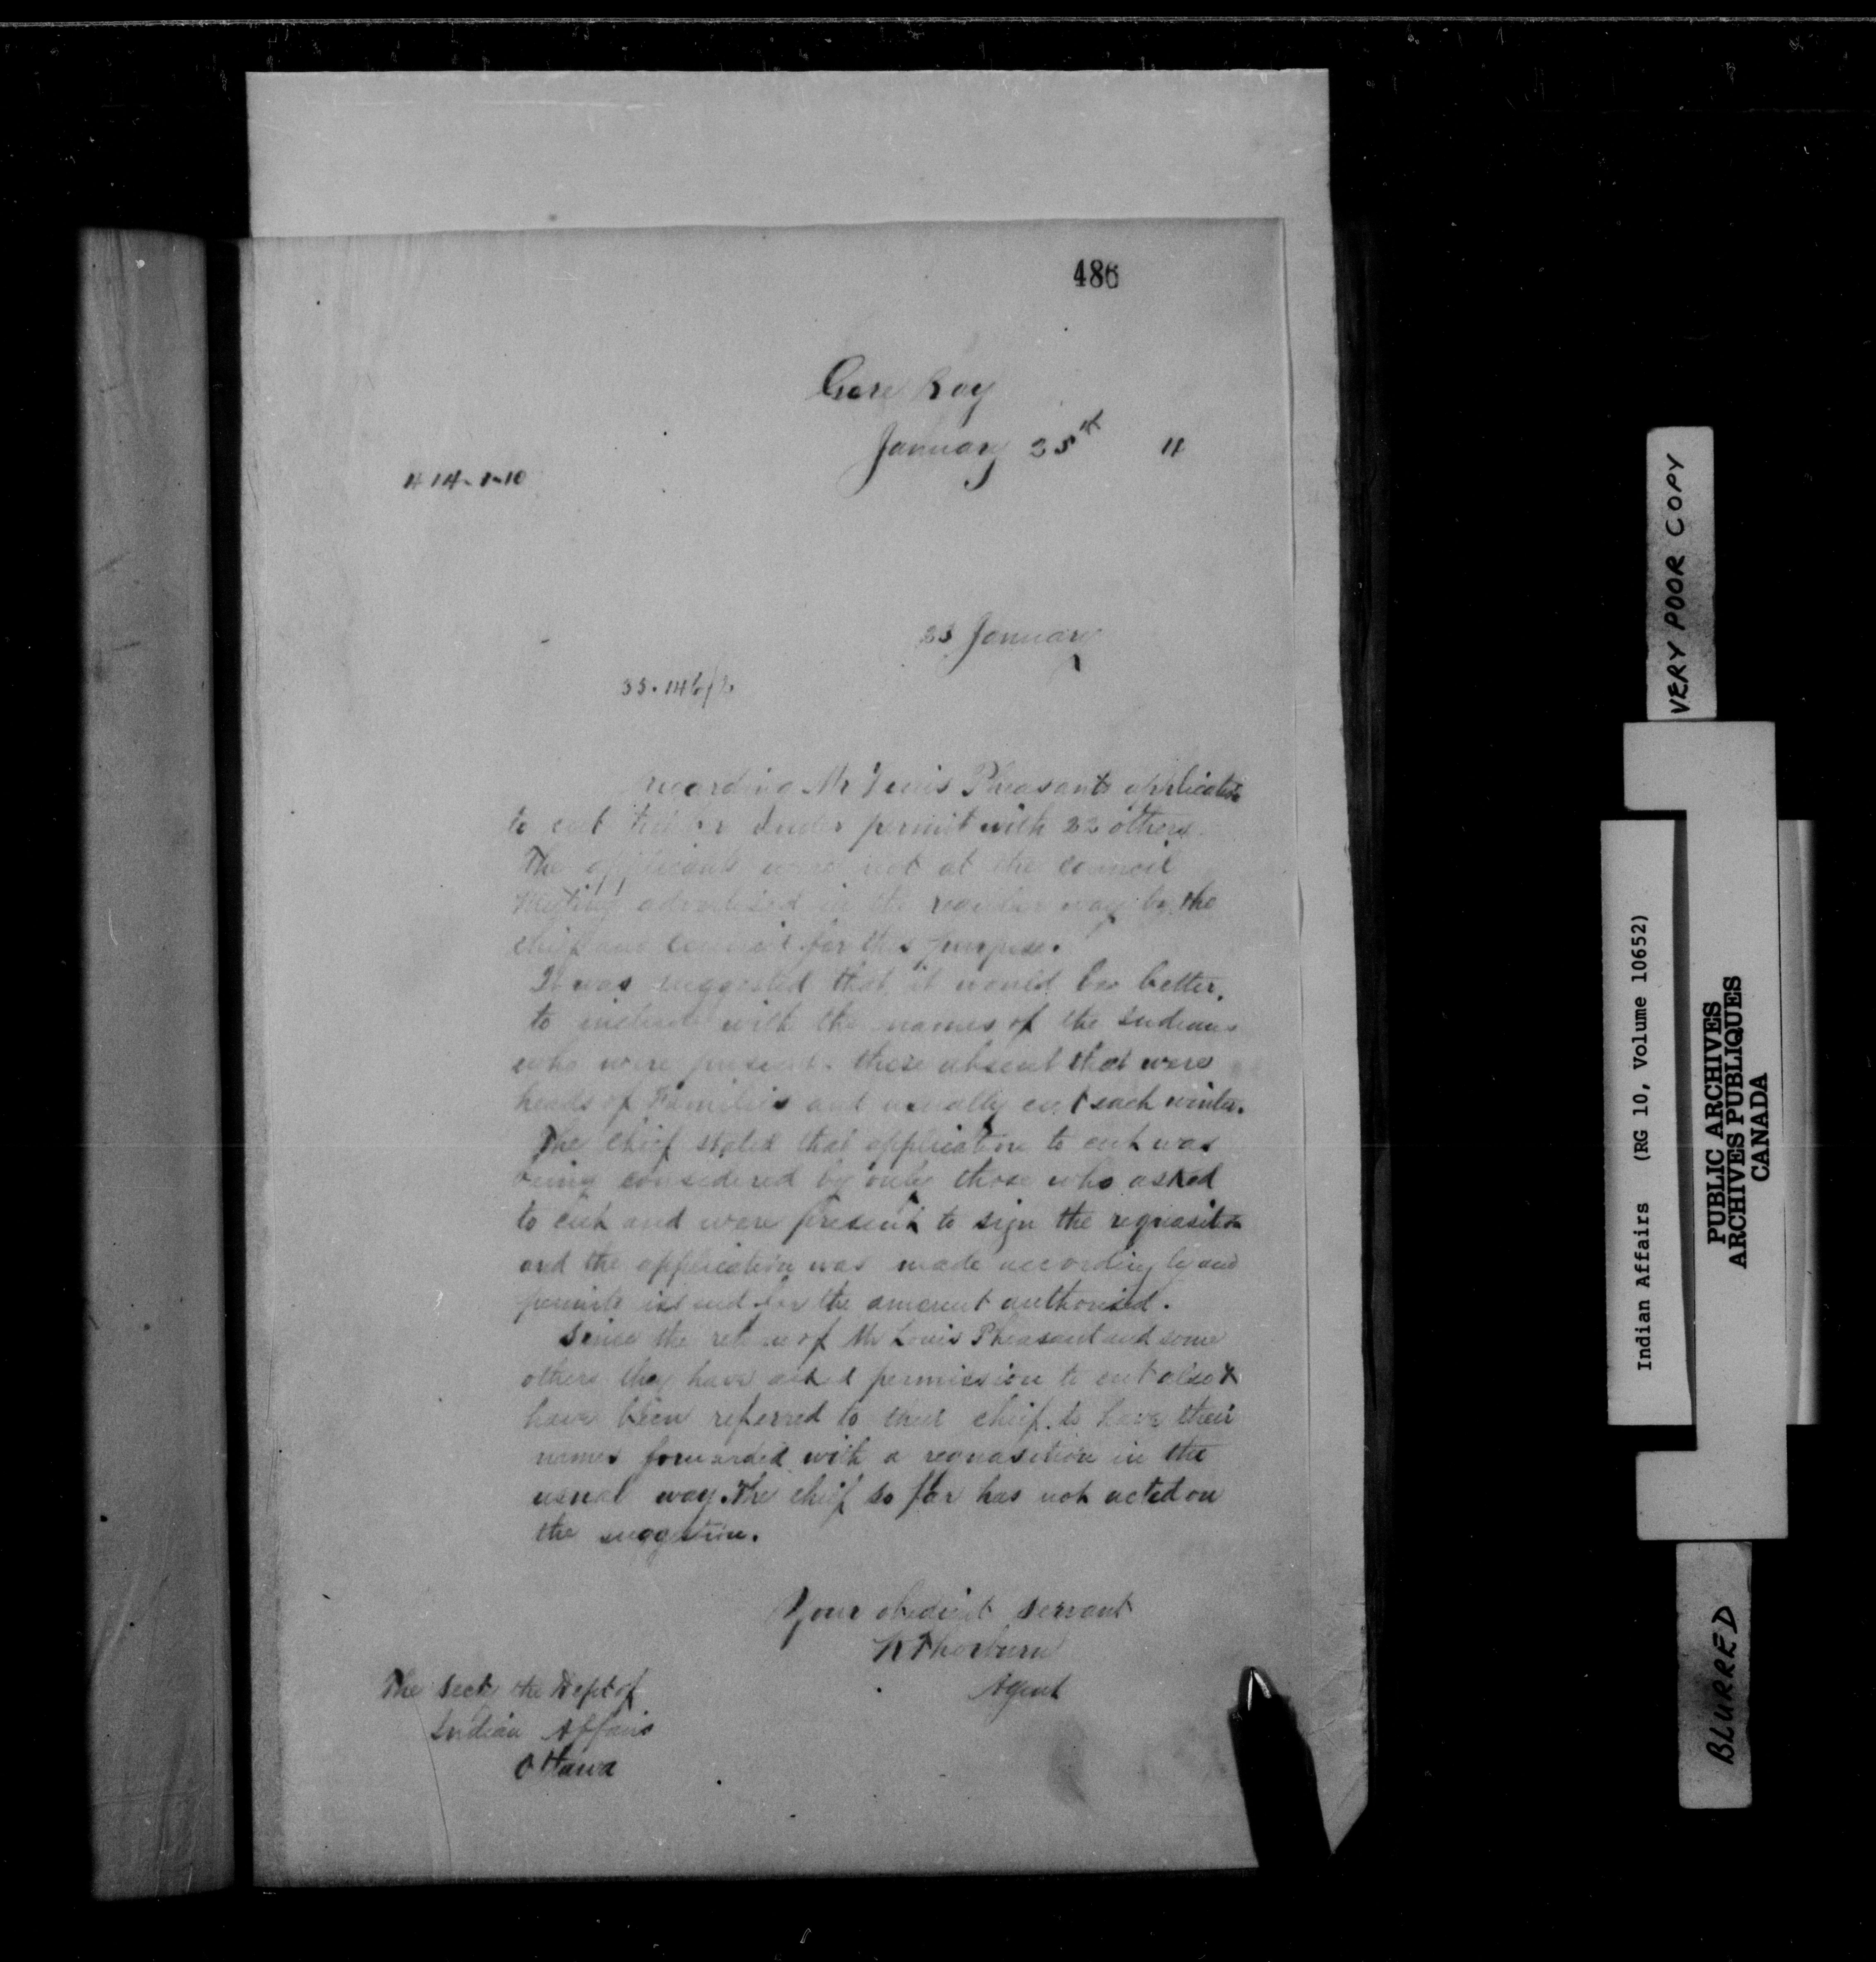 486
Gore Bay
January 25th 11
414-1-10
23 January
35.146/2
regarding Mr Louis Pheasants application
to cut timber under permit with 22 others.
The applicants were not at the council
Meeting advertised in the regular way by the
chief and council for this purpose.
It was suggested that it would be better,
to include with the names of the Indians
who were present. those absent that were
heads of Families and usually cut each winter.
The chief stated that application to cut was
being considered by only those who asked
to cut and were present to sign the requasition
and the application was made accordingly and
permits issued for the amount authorised.
Since the return of Mr Louis Pheasant and some
others they have asked permission to cut also &
have been referred to their chief to have their
names forwarded with a requasition in the
usual way. The chief so far has not acted on
the suggestion.
Your obedient servant
Thorburn
Agent
The Secty the Dept of
Indian Affairs
Ottawa
VERY POOR COPY
Indian Affairs (RG 10, Volume 10652)
PUBLIC ARCHIVES
ARCHIVES PUBLIQUES
CANADA
BLURRED